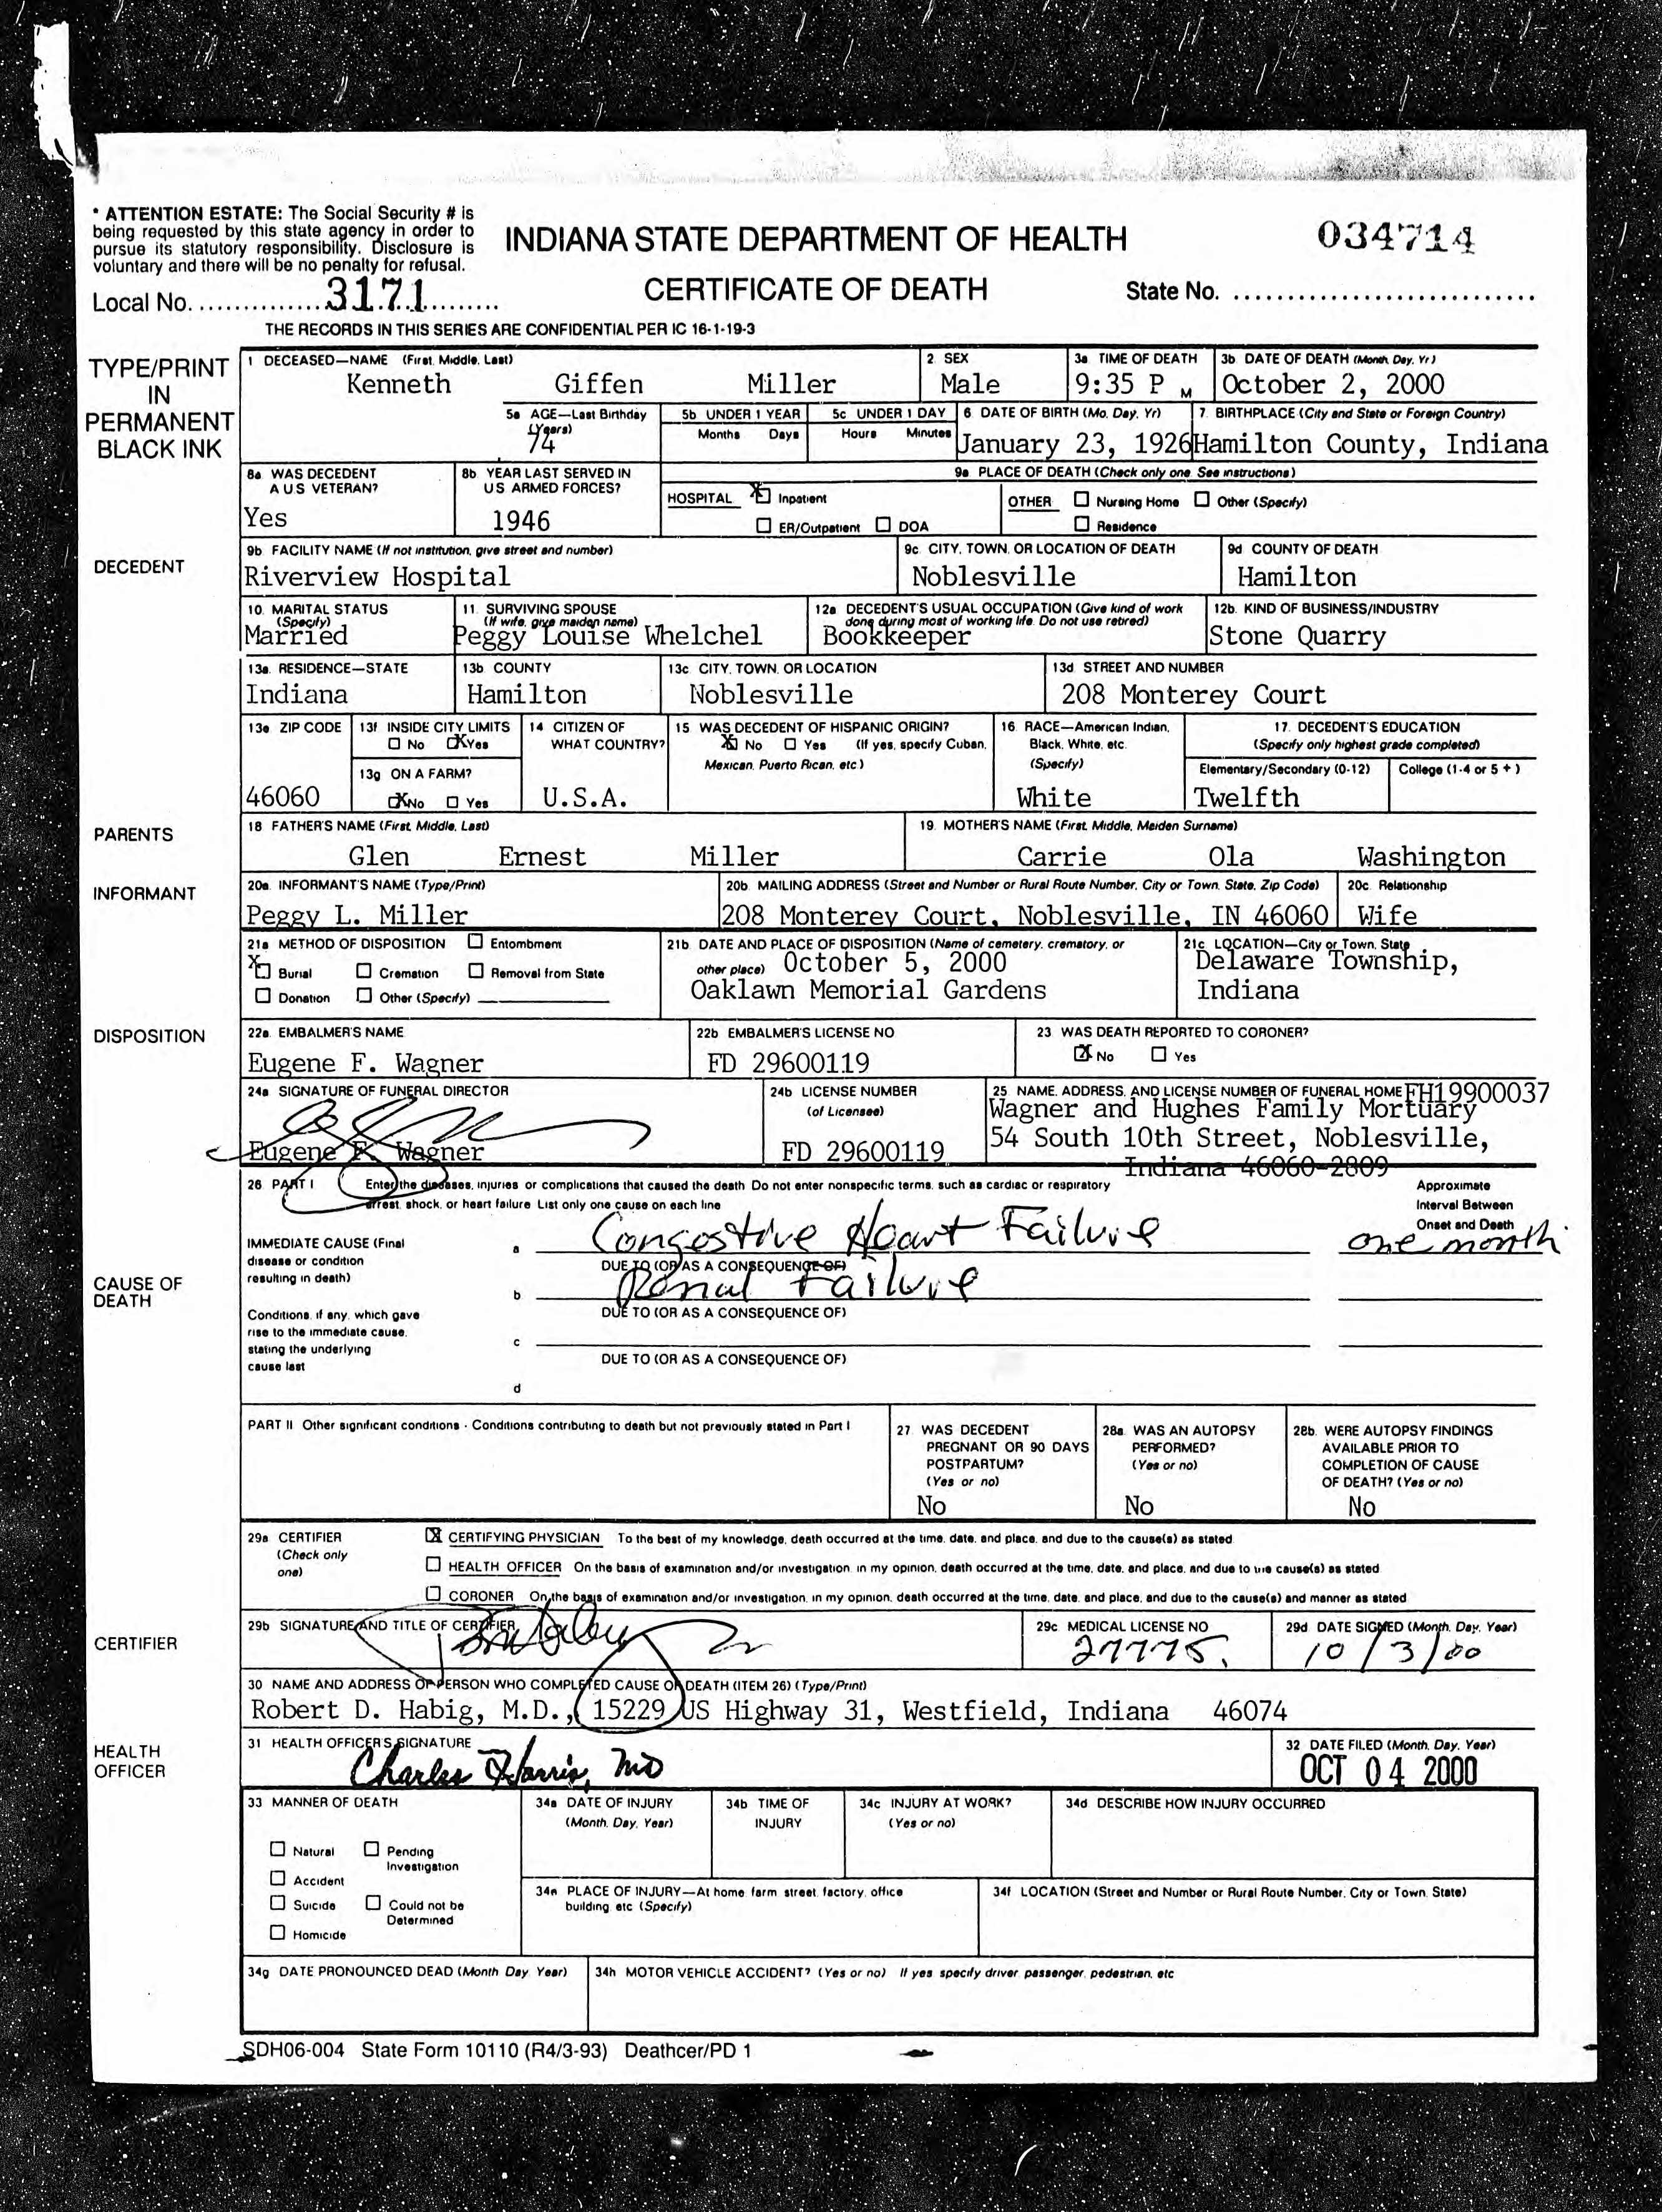 * ATTENTION ESTATE: The Social Security # is
being requested by this state agency in order to
pursue its statutory responsibility. Disclosure is
voluntary and there will be no penalty for refusal.
INDIANA STATE DEPARTMENT OF HEALTH
034714
CERTIFICATE OF DEATH
Local No. 3171
State No.
THE RECORDS IN THIS SERIES ARE CONFIDENTIAL PER IC 16-1-19-3
TYPE/PRINT
IN
PERMANENT
BLACK INK
1 DECEASED—NAME (First, Middle, Last)
Kenneth Giffen Miller
2. SEX
Male
3a TIME OF DEATH
9:35 P M
3b. DATE OF DEATH (Month, Day, Yr.)
October 2, 2000
5a AGE—Last Birthday
(Years)
74
5b UNDER 1 YEAR
Months Days
5c UNDER 1 DAY
Hours Minutes
6 DATE OF BIRTH (Mo, Day, Yr)
January 23, 1926
7. BIRTHPLACE (City and State or Foreign Country)
Hamilton County, Indiana
8a WAS DECEDENT
A U S VETERAN?
Yes
8b. YEAR LAST SERVED IN
US ARMED FORCES?
1946
9a PLACE OF DEATH (Check only one. See instructions)
HOSPITAL X Inpatient
ER/Outpatient DOA
OTHER Nursing Home Other (Specify)
Residence
DECEDENT
9b FACILITY NAME (If not institution, give street and number)
Riverview Hospital
9c. CITY, TOWN, OR LOCATION OF DEATH
Noblesville
9d COUNTY OF DEATH
Hamilton
10. MARITAL STATUS
(Specify)
Married
11. SURVIVING SPOUSE
(If wife, give maiden name)
Peggy Louise Whelchel
12a DECEDENT'S USUAL OCCUPATION (Give kind of work
done during most of working life. Do not use retired)
Bookkeeper
12b. KIND OF BUSINESS/INDUSTRY
Stone Quarry
13a. RESIDENCE—STATE
Indiana
13b COUNTY
Hamilton
13c CITY, TOWN, OR LOCATION
Noblesville
13d. STREET AND NUMBER
208 Monterey Court
13e ZIP CODE
46060
13f INSIDE CITY LIMITS
No X Yes
13g ON A FARM?
X No Yes
14 CITIZEN OF
WHAT COUNTRY?
U.S.A.
15 WAS DECEDENT OF HISPANIC ORIGIN?
X No Yes (If yes, specify Cuban,
Mexican, Puerto Rican, etc.)
16 RACE—American Indian,
Black, White, etc.
(Specify)
White
17. DECEDENT'S EDUCATION
(Specify only highest grade completed)
Elementary/Secondary (0-12) College (1-4 or 5 +)
Twelfth
PARENTS
18 FATHER'S NAME (First, Middle, Last)
Glen Ernest Miller
19. MOTHER'S NAME (First, Middle, Maiden Surname)
Carrie Ola Washington
INFORMANT
20a. INFORMANT'S NAME (Type/Print)
Peggy L. Miller
20b. MAILING ADDRESS (Street and Number or Rural Route Number, City or Town, State, Zip Code)
208 Monterey Court, Noblesville, IN 46060
20c. Relationship
Wife
21a METHOD OF DISPOSITION Entombment
X Burial Cremation Removal from State
Donation Other (Specify)
21b. DATE AND PLACE OF DISPOSITION (Name of cemetery, crematory, or
other place) October 5, 2000
Oaklawn Memorial Gardens
21c. LOCATION—City or Town, State
Delaware Township,
Indiana
DISPOSITION
22a. EMBALMER'S NAME
Eugene F. Wagner
22b EMBALMER'S LICENSE NO
FD 29600119
23 WAS DEATH REPORTED TO CORONER?
X No Yes
24a SIGNATURE OF FUNERAL DIRECTOR
Eugene F. Wagner
24b LICENSE NUMBER
(of Licensee)
FD 29600119
25 NAME, ADDRESS, AND LICENSE NUMBER OF FUNERAL HOME FH19900037
Wagner and Hughes Family Mortuary
54 South 10th Street, Noblesville,
Indiana 46060-2809
26 PART I Enter the diseases, injuries or complications that caused the death Do not enter nonspecific terms, such as cardiac or respiratory
arrest, shock, or heart failure List only one cause on each line
Approximate
Interval Between
Onset and Death
CAUSE OF
DEATH
IMMEDIATE CAUSE (Final
disease or condition
resulting in death)
a Congestive Heart Failure one month
DUE TO (OR AS A CONSEQUENCE OF)
b Renal Failure
DUE TO (OR AS A CONSEQUENCE OF)
Conditions, if any, which gave
rise to the immediate cause,
stating the underlying
cause last
c
DUE TO (OR AS A CONSEQUENCE OF)
d
PART II Other significant conditions - Conditions contributing to death but not previously stated in Part I
27. WAS DECEDENT
PREGNANT OR 90 DAYS
POSTPARTUM?
(Yes or no)
No
28a. WAS AN AUTOPSY
PERFORMED?
(Yes or no)
No
28b. WERE AUTOPSY FINDINGS
AVAILABLE PRIOR TO
COMPLETION OF CAUSE
OF DEATH? (Yes or no)
No
29a CERTIFIER
(Check only
one)
X CERTIFYING PHYSICIAN To the best of my knowledge, death occurred at the time, date, and place, and due to the cause(s) as stated
HEALTH OFFICER On the basis of examination and/or investigation, in my opinion, death occurred at the time, date, and place, and due to the cause(s) as stated
CORONER On the basis of examination and/or investigation, in my opinion, death occurred at the time, date, and place, and due to the cause(s) and manner as stated
CERTIFIER
29b SIGNATURE AND TITLE OF CERTIFIER
29c. MEDICAL LICENSE NO
27775.
29d DATE SIGNED (Month, Day, Year)
10/3/00
30 NAME AND ADDRESS OF PERSON WHO COMPLETED CAUSE OF DEATH (ITEM 26) (Type/Print)
Robert D. Habig, M.D., 15229 US Highway 31, Westfield, Indiana 46074
HEALTH
OFFICER
31 HEALTH OFFICER'S SIGNATURE
Charles Harris, MD
32 DATE FILED (Month, Day, Year)
OCT 04 2000
33 MANNER OF DEATH
Natural Pending
Investigation
Accident
Suicide Could not be
Determined
Homicide
34a DATE OF INJURY
(Month, Day, Year)
34b TIME OF
INJURY
34c INJURY AT WORK?
(Yes or no)
34d DESCRIBE HOW INJURY OCCURRED
34e PLACE OF INJURY—At home, farm, street, factory, office
building, etc (Specify)
34f LOCATION (Street and Number or Rural Route Number, City or Town, State)
34g DATE PRONOUNCED DEAD (Month Day Year)
34h MOTOR VEHICLE ACCIDENT? (Yes or no) If yes specify driver, passenger, pedestrian, etc
SDH06-004 State Form 10110 (R4/3-93) Deathcer/PD 1